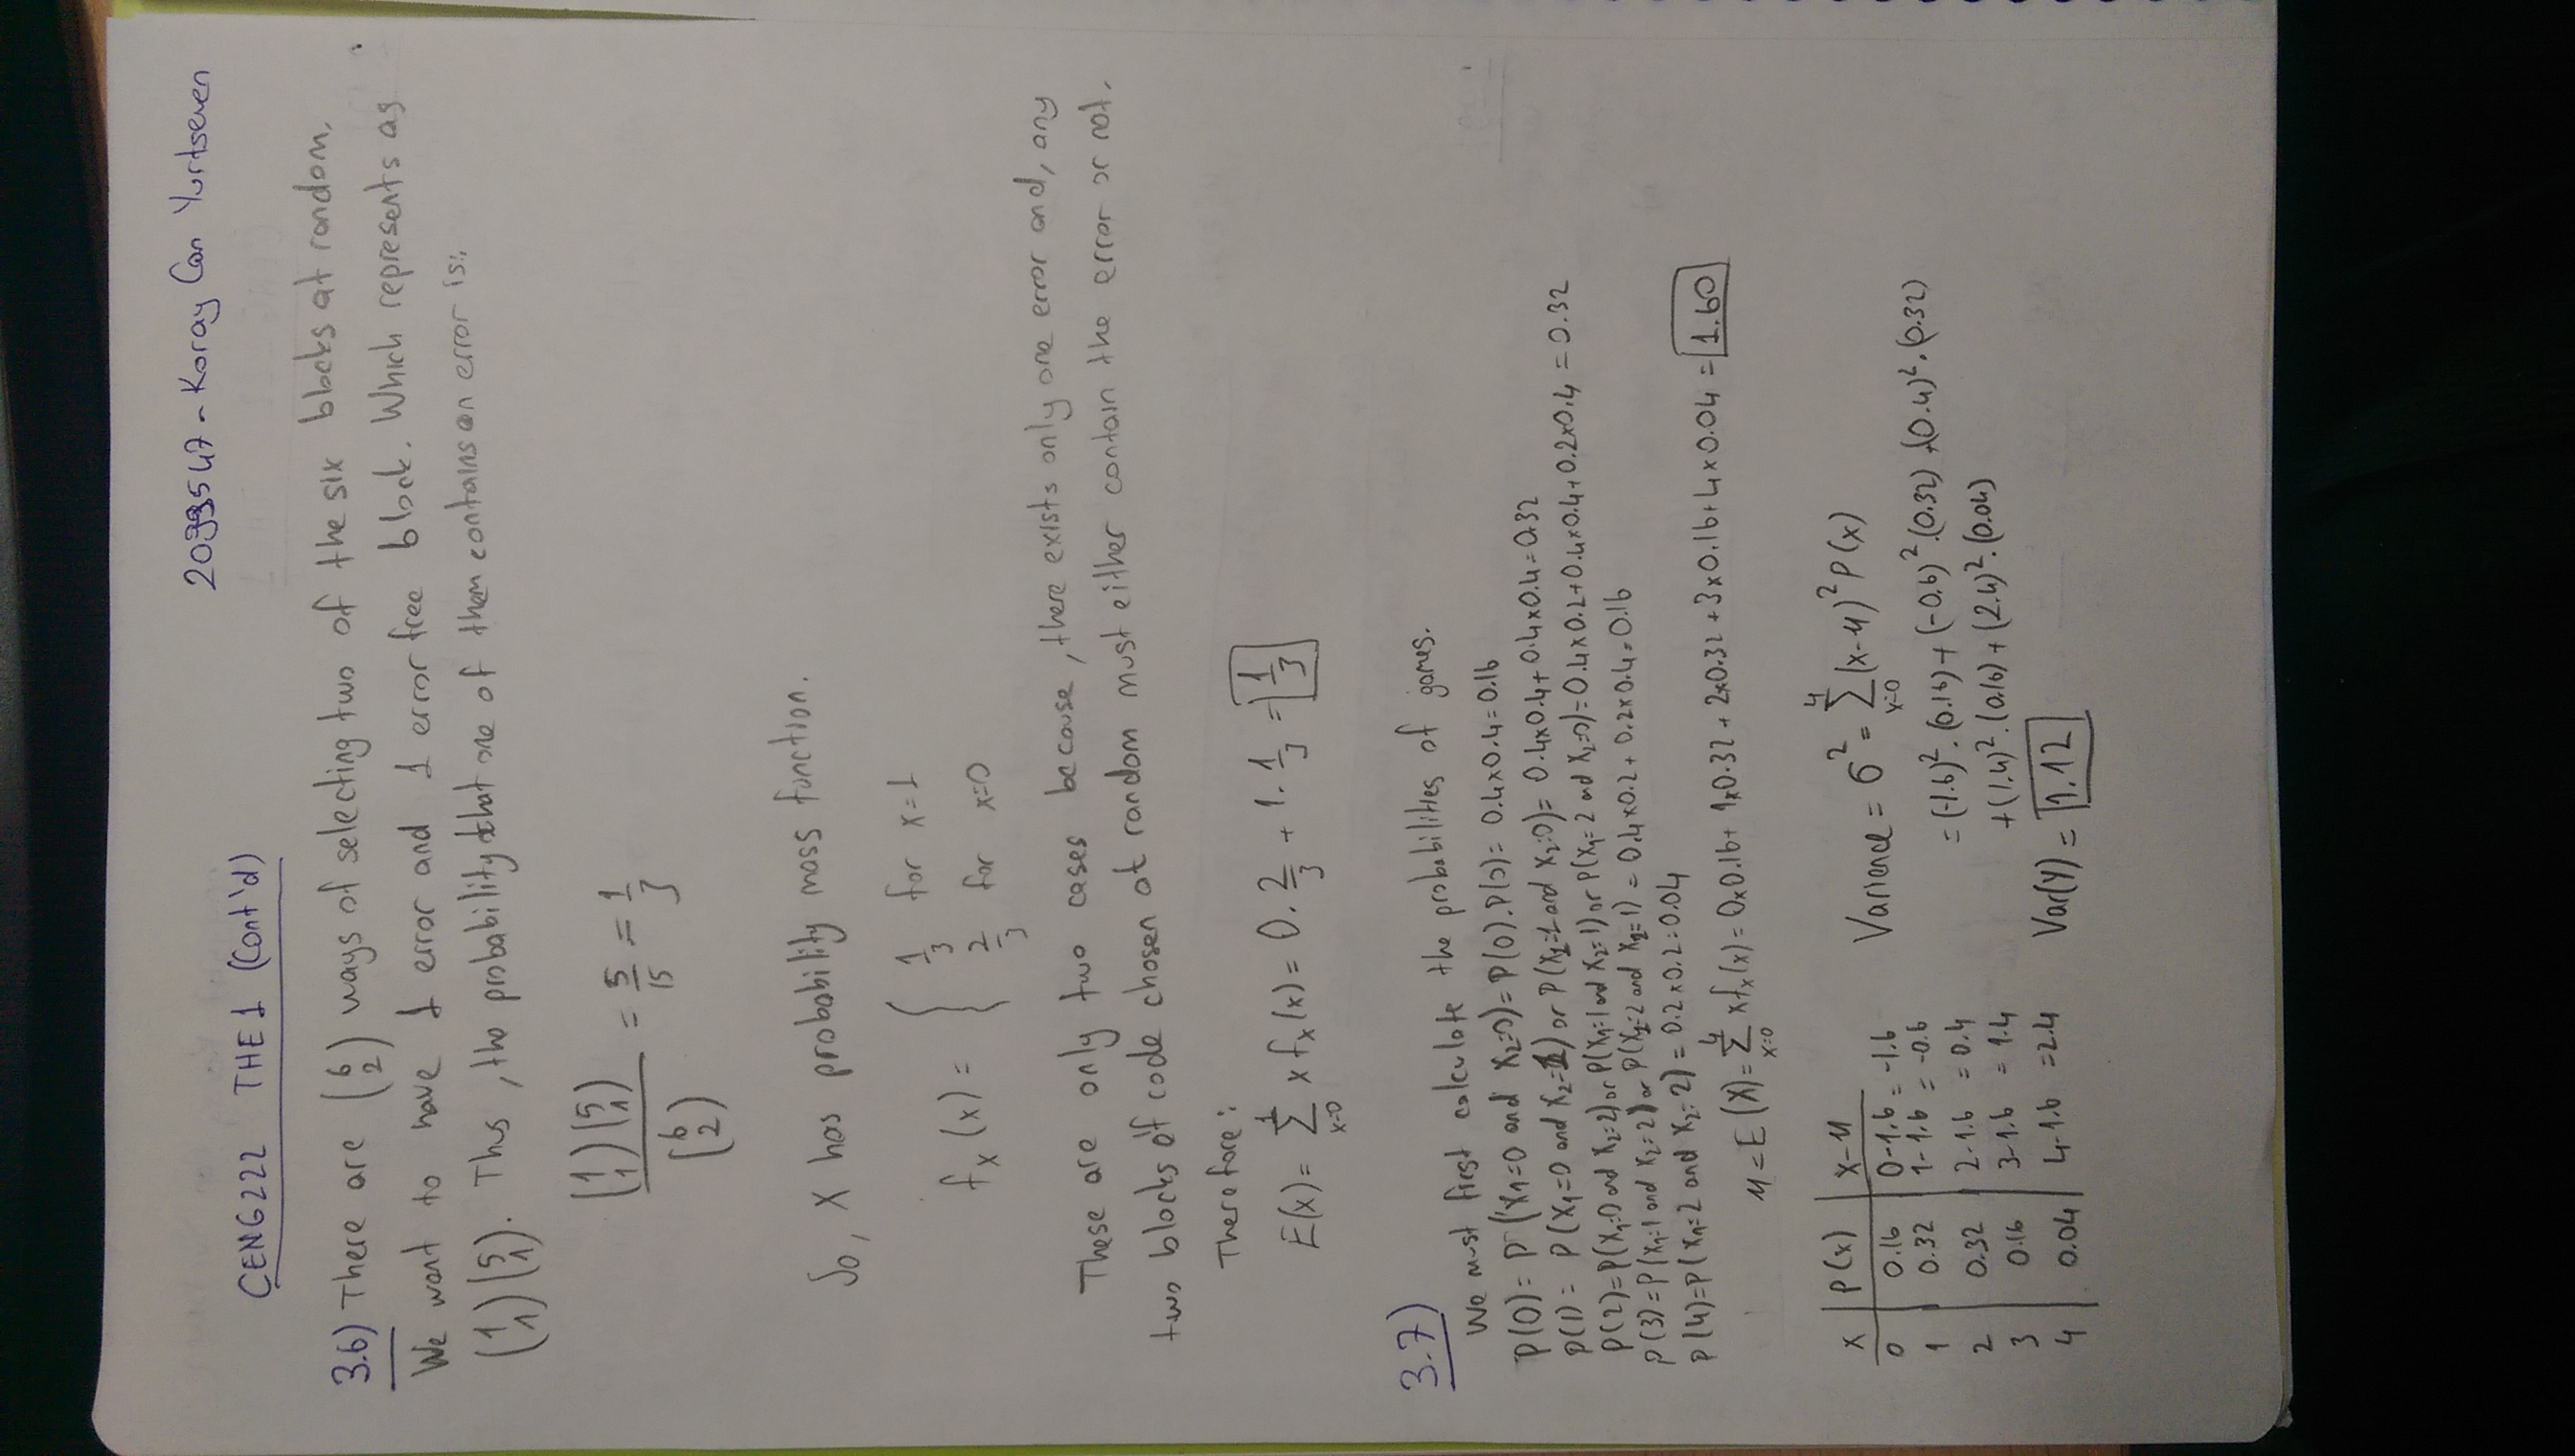 2099547 - Koray Can Yurtseven
CENG222 THE1 (Cont'd)
3.6) There are (6 2) ways of selecting two of the six blocks at random.
We want to have 1 error and 1 error free block. Which represents as
(1 1)(5 1). Thus, the probability that one of them contains an error is:
(1 1)(5 1) / (6 2) = 5/15 = 1/3
So, X has probability mass function.
fx(x) = { 1/3 for x=1
2/3 for x=0
These are only two cases because, there exists only one error and, any
two blocks of code chosen at random must either contain the error or not.
Therefore:
E(x) = 1∑x=0 x fx(x) = 0. 2/3 + 1. 1/3 = 1/3
3.7)
We must first calculate the probabilities of games.
P(0) = P(X1=0 and X2=0) = P(0).P(0) = 0.4x0.4=0.16
P(1) = P(X1=0 and X2=1) or P(X1=1 and X2=0) = 0.4x0.4+0.4x0.4=0.32
P(2)=P(X1=0 and X2=2) or P(X1=1 and X2=1) or P(X1=2 and X2=0)=0.4x0.2+0.4x0.4+0.2x0.4=0.32
P(3)=P(X1=1 and X2=2) or P(X1=2 and X2=1) = 0.4x0.2+0.2x0.4=0.16
P(4)=P(X1=2 and X2=2) = 0.2x0.2=0.04
μ=E(X)= 4∑x=0 xfx(x)=0x0.16+1x0.32+2x0.32+3x0.16+4x0.04 = 1.60
x | P(x) | x-μ
0 | 0.16 | 0-1.6 = -1.6
1 | 0.32 | 1-1.6 = -0.6
2 | 0.32 | 2-1.6 = 0.4
3 | 0.16 | 3-1.6 = 1.4
4 | 0.04 | 4-1.6 = 2.4
Variance = σ² = 4∑x=0 (x-μ)² P(x)
= (-1.6)².(0.16) + (-0.6)².(0.32) + (0.4)².(0.32)
+ (1.4)².(0.16) + (2.4)².(0.04)
Var(Y) = 1.12